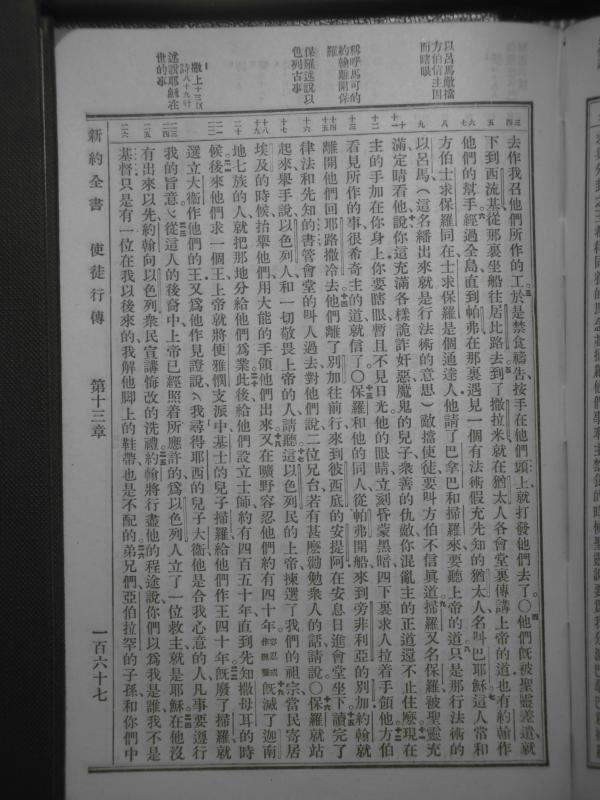 以呂馬敵擋
方伯信主因
而瞎眼
稱呼馬可的
約翰離開保
羅
保羅述說以
色列古事
述說耶穌在
世的事
去作我召他們所作的工於是禁食禱告按手在他們頭上就打發他們去了〇他們既被聖靈差遣就
下到西流基從那裏坐船往居比路去到了撒拉米就在猶太人各會堂裏傳講上帝的道也有約翰作
他們的幫手經過全島直到帕弗在那裏遇見一個有法術假充先知的猶太人名叫巴耶穌這人常和
方伯士求保羅同在士求保羅是個通達人他請了巴拿巴和掃羅來要聽上帝的道只是那行法術的
以呂馬（這名繙出來就是行法術的意思）敵擋使徒要叫方伯不信眞道掃羅又名保羅被聖靈充
滿定睛看他說你這充滿各樣詭詐奸惡魔鬼的兒子衆善的仇敵你混亂主的正道還不止住麽現在
主的手加在你身上你要瞎眼暫且不見日光他的眼睛立刻昏蒙黑暗四下裏求人拉着手領他方伯
看見所作的事很希奇主的道就信了〇保羅和他的同人從帕弗開船來到旁非利亞的別加約翰就
離開他們回耶路撒冷去他們離了別加往前行來到彼西底的安提阿在安息日進會堂坐下讀完了
律法和先知的書管會堂的叫人過去對他們說二位兄台若有甚麽勸勉衆人的話請說〇保羅就站
起來舉手說以色列人和一切敬畏上帝的人請聽這以色列民的上帝揀選了我們的祖宗當民寄居
埃及的時候抬舉他們用大能的手領他們出來又在曠野容忍他們約有四十年容忍或作撫養既滅了迦南
地七族的人就把那地分給他們爲業此後給他們設立士師約有四百五十年直到先知撒母耳的時
候後來他們求一個王上帝就將便雅憫支派中基士的兒子掃羅給他們作王四十年既廢了掃羅就
選立大衞作他們的王又爲他作見證說我尋得耶西的兒子大衞他是合我心意的人凡事要遵行
我的旨意從這人的後裔中上帝已經照着所應許的爲以色列人立了一位救主就是耶穌在他沒
有出來以先約翰向以色列衆民宣講悔改的洗禮約翰將行盡他的程途說你們以爲我是誰我不是
基督只是有一位在我以後來的我解他脚上的鞋帶也是不配的弟兄們亞伯拉罕的子孫和你們中
新約全書　使徒行傳　第十三章　一百六十七